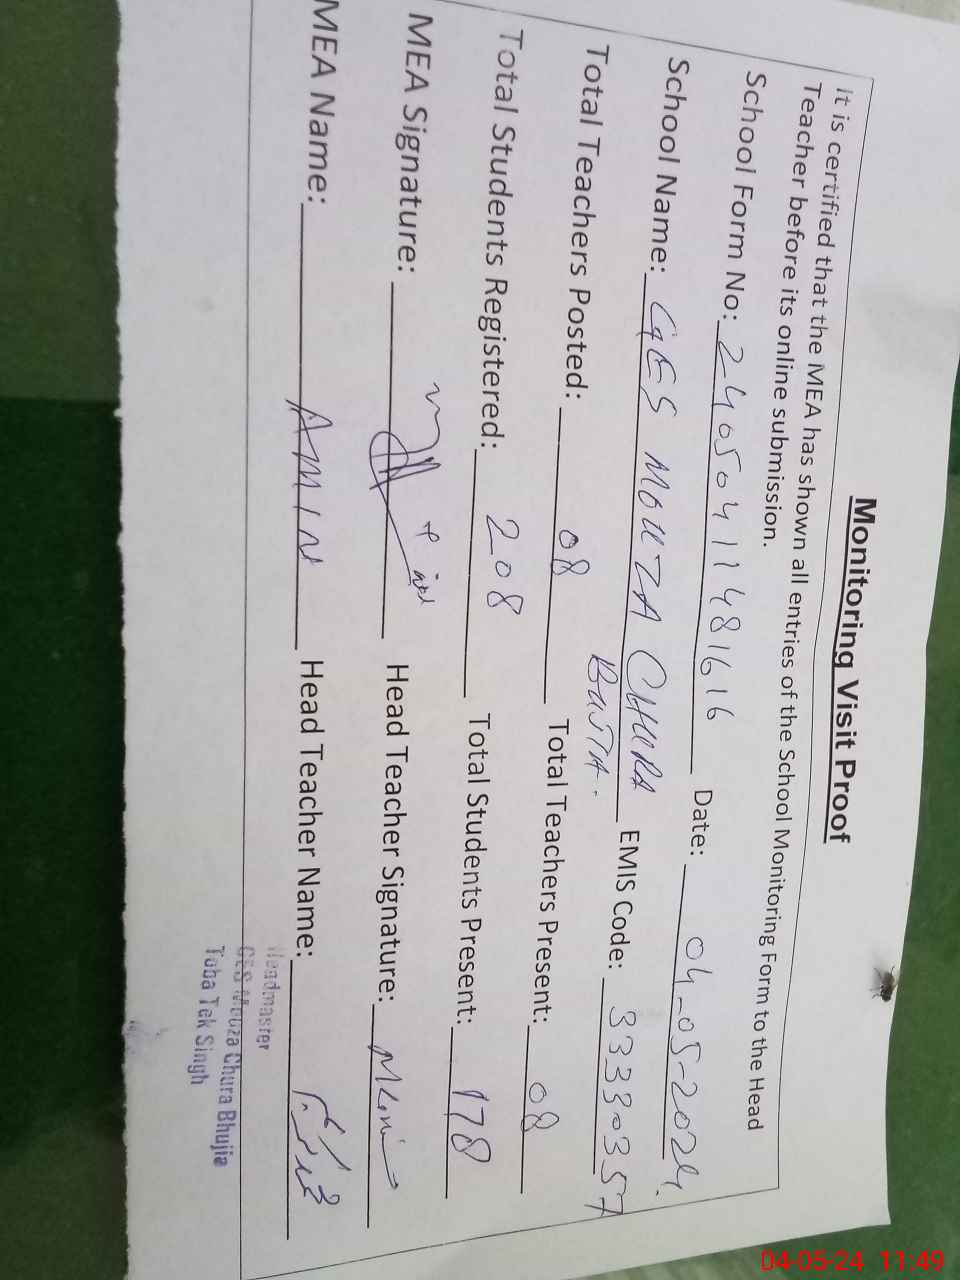 Monitoring Visit Proof
It is certified that the MEA has shown all entries of the School Monitoring Form to the Head
Teacher before its online submission.
School Form No: 2405041148 1616 Date: 04-05-2024.
School Name: GES MOUZA CHURA EMIS Code: 33330357
BUJIA.
Total Teachers Posted: 08 Total Teachers Present: 08
Total Students Registered: 208 Total Students Present: 178
MEA Signature: Head Teacher Signature:
MEA Name: AMIN Head Teacher Name:
Headmaster
GES Mouza Chura Bhujia
Toba Tek Singh
04-05-24 11:49